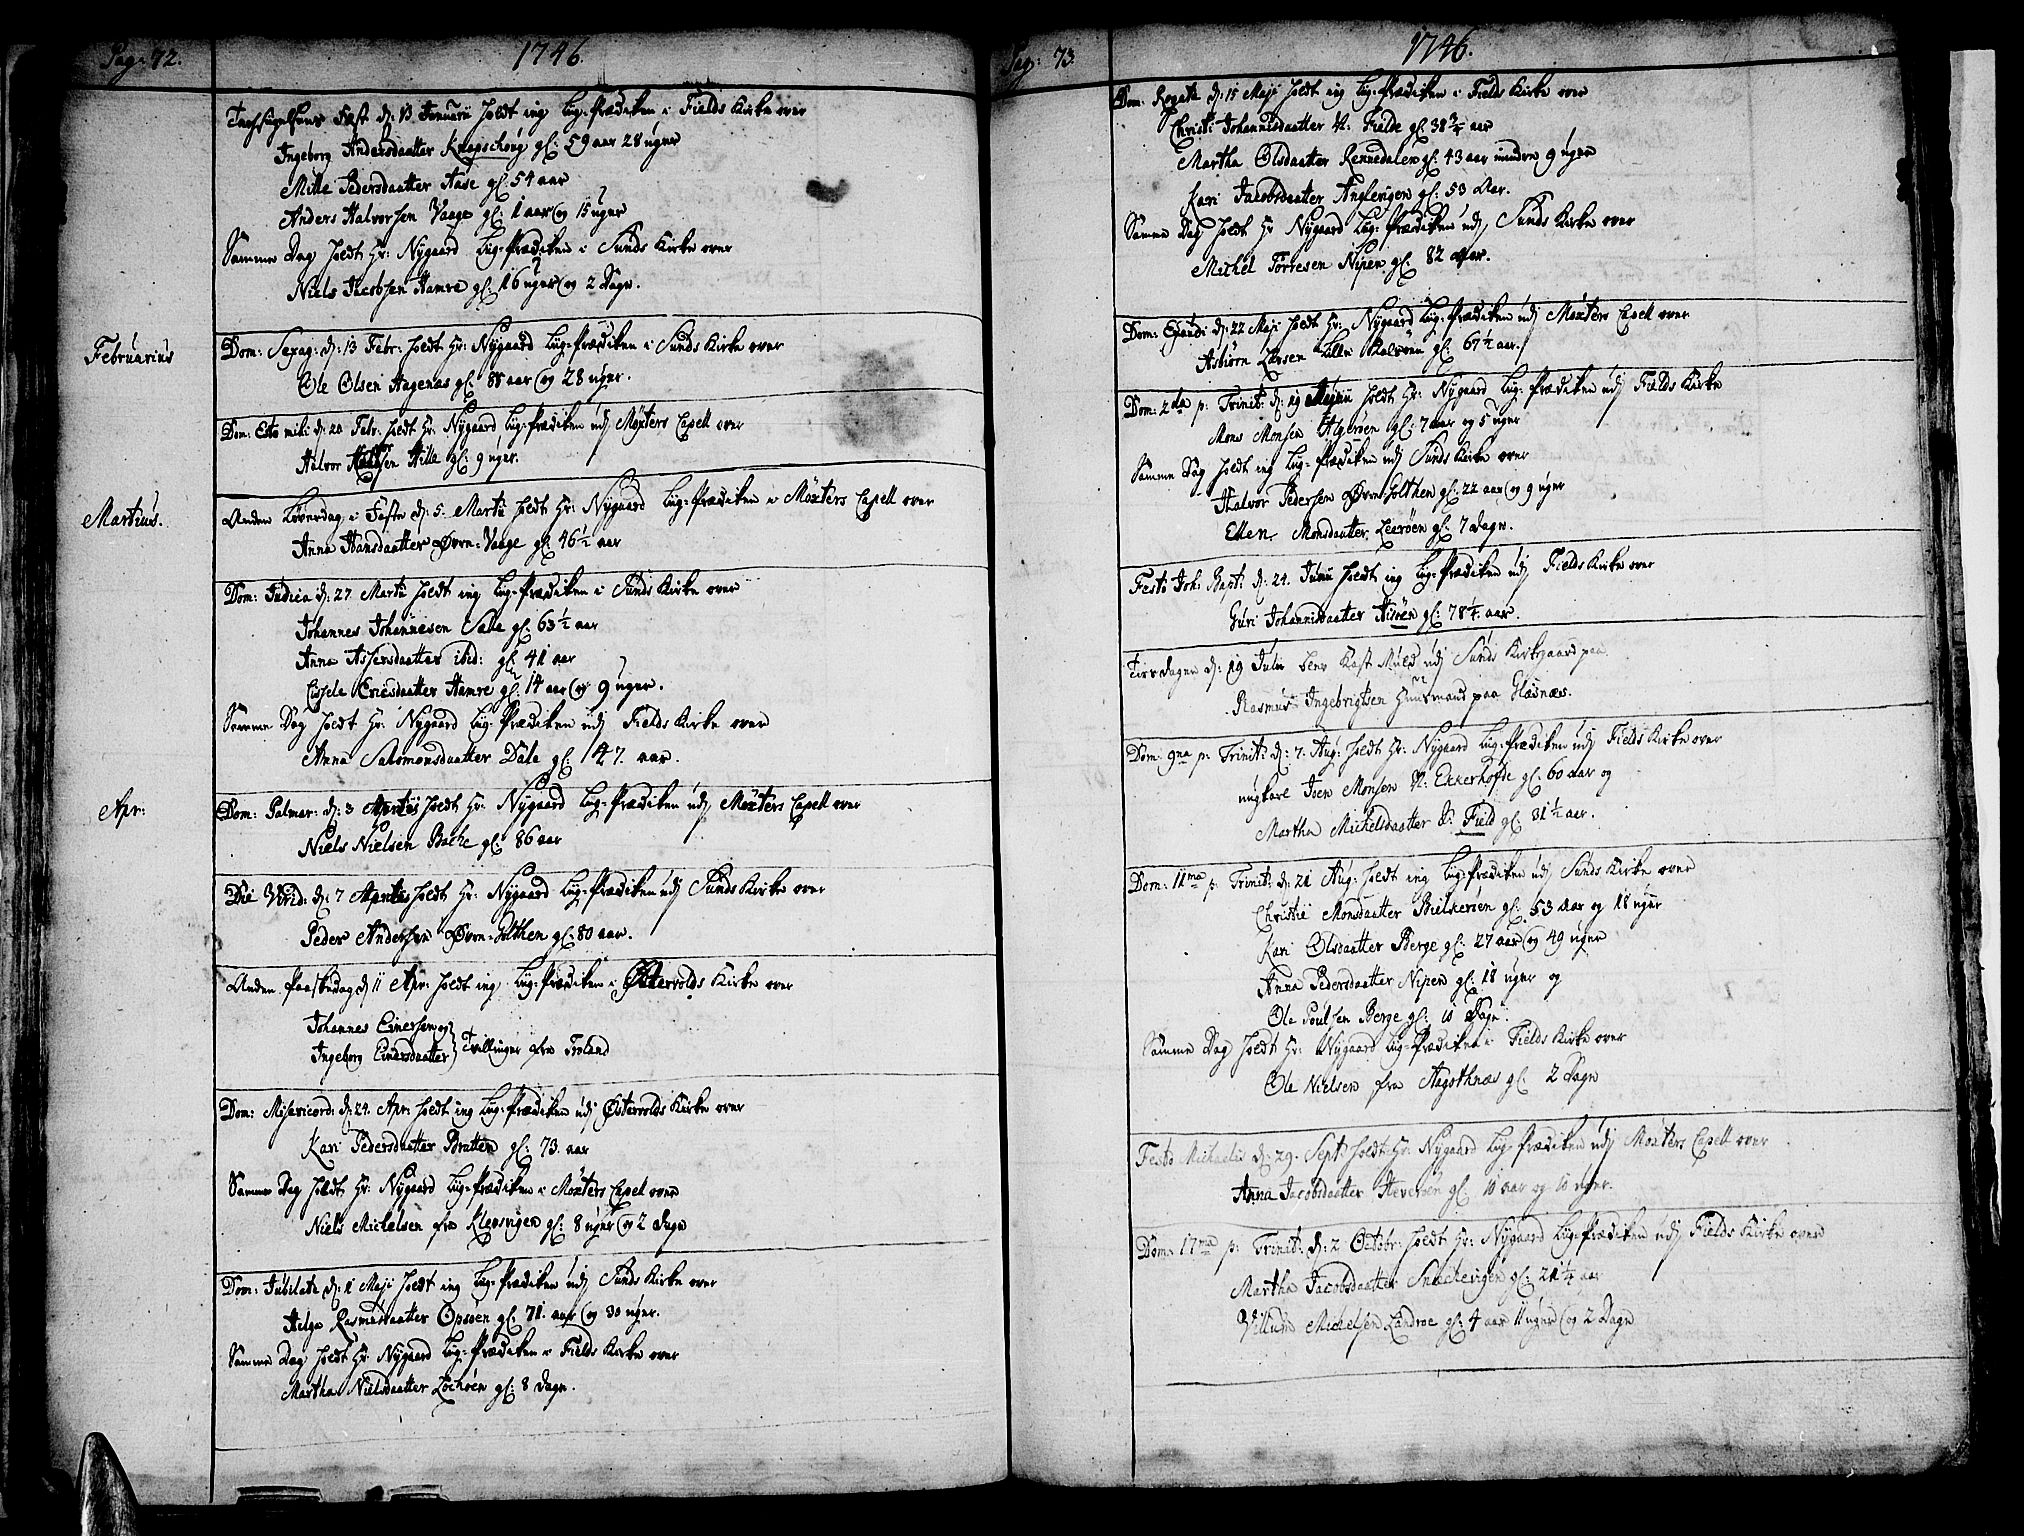 Pag: 72.
1746.
Fest d: 13 Januarii holdt ieg Liig-Prædiken i Fields Kirke over
Ingeborg Andersdaatter Knapschoug gl: 59 aar 28 uger
Mille Pedersdaatter Aase gl: 54 aar
Anders Halvorsen Vaage gl: 1 aar og 15 uger
Samme Dag holdt Hr: Nygaard Liig-Prædiken i Sunds Kirke over
Niels Jacobsen Hamre gl: 16 uger og 2 Dage.
Februarius
Dom: Sexag: d: 13 Febr: holdt Hr: Nygaard Liig-Prædiken i Sunds Kirke over
Ole Olsen Hagenæs gl: 88 aar og 28 uger.
Dom: Esto mihi d: 20 Febr: holdt Hr: Nygaard Liig-Prædiken udj Møxters Capell over
Halvor Hille gl: 9 uger.
Martius.
Anden Løverdag i Faste d: 5. Martii holdt Hr: Nygaard Liig-Prædiken i Møxters Capell over
Anna Hansdaatter Øvre-Vaage gl: 46½ aar
Dom: Judica d: 27 Martii holdt ieg Liig-Prædiken i Sunds Kirke over
Johannes Johannesen Sæle gl: 63½ aar
Anna Assersdaatter ibid: gl: 41 aar
Cissele Ericsdaatter Hamre gl: 14 aar og 9 uger.
Samme Dag holdt Hr: Nygaard Liig-Prædiken udj Fields Kirke over
Anna Salomonsdaatter Dale gl: 47. aar.
Apr:
Dom: Palmar: d: 3 holdt Hr: Nygaard Liig-Prædiken udj Møxters Capell over
Niels Nielsen Bache gl: 86 aar
Die Virid: d: 7 holdt Hr: Nygaard Liig-Prædiken udj Sunds Kirke over
Peder Andersen Øvre-Golthen gl: 80 aar.
Anden Paaskedag d 11 Apr: holdt ieg Liig-Prædiken i Østervolds Kirke over
Johannes Einersen og
Ingeborg Einersdaatter } Tvillinger fra Troland
Dom: Misericord: d: 24. Apr: holdt ieg Liig-Prædiken udj Østervolds Kirke over
Kari Pedersdaatter Bratten gl: 73. aar
Samme Dag holdt Hr: Nygaard Liig-Prædiken i Møxters Capell over
Niels Michelsen fra Klepsvigen gl: 8 uger og 2 Dage
Dom: Jubilate d: 1 Maji holdt ieg Liig-Prædiken udj Sunds Kirke over
Helge Rasmusdaatter Opsøen gl: 71. aar og 30 uger.
Samme Dag holdt Hr: Nygaard Liig-Prædiken i Fields Kirke over
Martha Nielsdaatter Lochøen gl: 8 Dage.
Pag: 73.
1746.
Dom: Rogate d: 15 Maji holdt ieg Liig-Prædiken i Fields Kirke over
Christi Johannisdaatter N: Fielde gl: 38¾ aar
Martha Olsdaatter Rennedalen gl: 43 aar mindre 9 uger
Kari Jacobsdaatter Anglevigen gl: 53 Aar.
Samme Dag holdt Hr Nygaard Liig-Prædiken udj Sunds Kirke over
Michel Torresen Nipen gl: 82 aar.
Dom: Exaudi d: 22 Maji holdt Hr: Nygaard Liig-Prædiken udj Møxters Capell over
Asbiørn Larsen Lille Kalsøen gl: 67½ aar.
Dom: 2da p: Trinit: d: 19 Junii holdt Hr: Nygaard Liig-Prædiken udj Fields Kirke
Mons Monsen Algerøen gl: 7 aar og 5 uger
Samme Dag holdt ieg Liig-Prædiken udj Sunds Kirke over
Halvor Pedersen Øvre-Golthen gl: 22 aar og 9 uger
Ellen Monsdaatter Leerøen gl: 7 Dage.
Festo Joh: Bapt: d: 24. Junii holdt ieg Liig-Prædiken udj Fields Kirke over
Guri Johannisdaatter Bisøen gl: 78¼ aar.
Tirsdagen d: 19 Julii blev Kast Muld udj Sunds Kirkegaard paa
Rasmus Ingebrigtsen Huusmand paa Glæsnæs.
Dom: 9na p: Trinit: d: 7. Aug: holdt Hr: Nygaard Liig-Prædiken udj Fields Kirke over
ungkarl Joen Monsen N: Eckerhofde gl: 60 aar og
Martha Michelsdaatter Ø: Field gl: 31½ aar.
Dom: 11ma p: Trinit: d: 21 Aug: holdt ieg Liig-Prædiken udj Sunds Kirke over
Christi Monsdaatter Bielkerøen gl: 53 aar og 18 uger
Kari Olsdaatter Berge gl: 27 aar og 49 uger
Anna Pedersdaatter Nipen gl: 18 uger og
Ole Poulsen Berge gl: 10 Dage.
Samme Dag holdt Hr: Nygaard Liig-Prædiken i Fields Kirke over
Ole Nielsen fra Aagothnæs gl: 2 Dage
Festo Michaelis d: 29. Sept: holdt Hr: Nygaard Liig-Prædiken udj Møxters Capell over
Anna Jacobsdaatter Hevrøen gl: 10 aar og 10 uger.
Dom: 17ma p: Trinit: d: 2 Octobr: holdt Hr: Nygaard Liig-Prædiken udj Fields Kirke over
Martha Jacobsdaatter Sneckevigen gl: 21¼ aar
Villum Michelsen Landroe gl: 4 aar 11 uger og 2 Dage